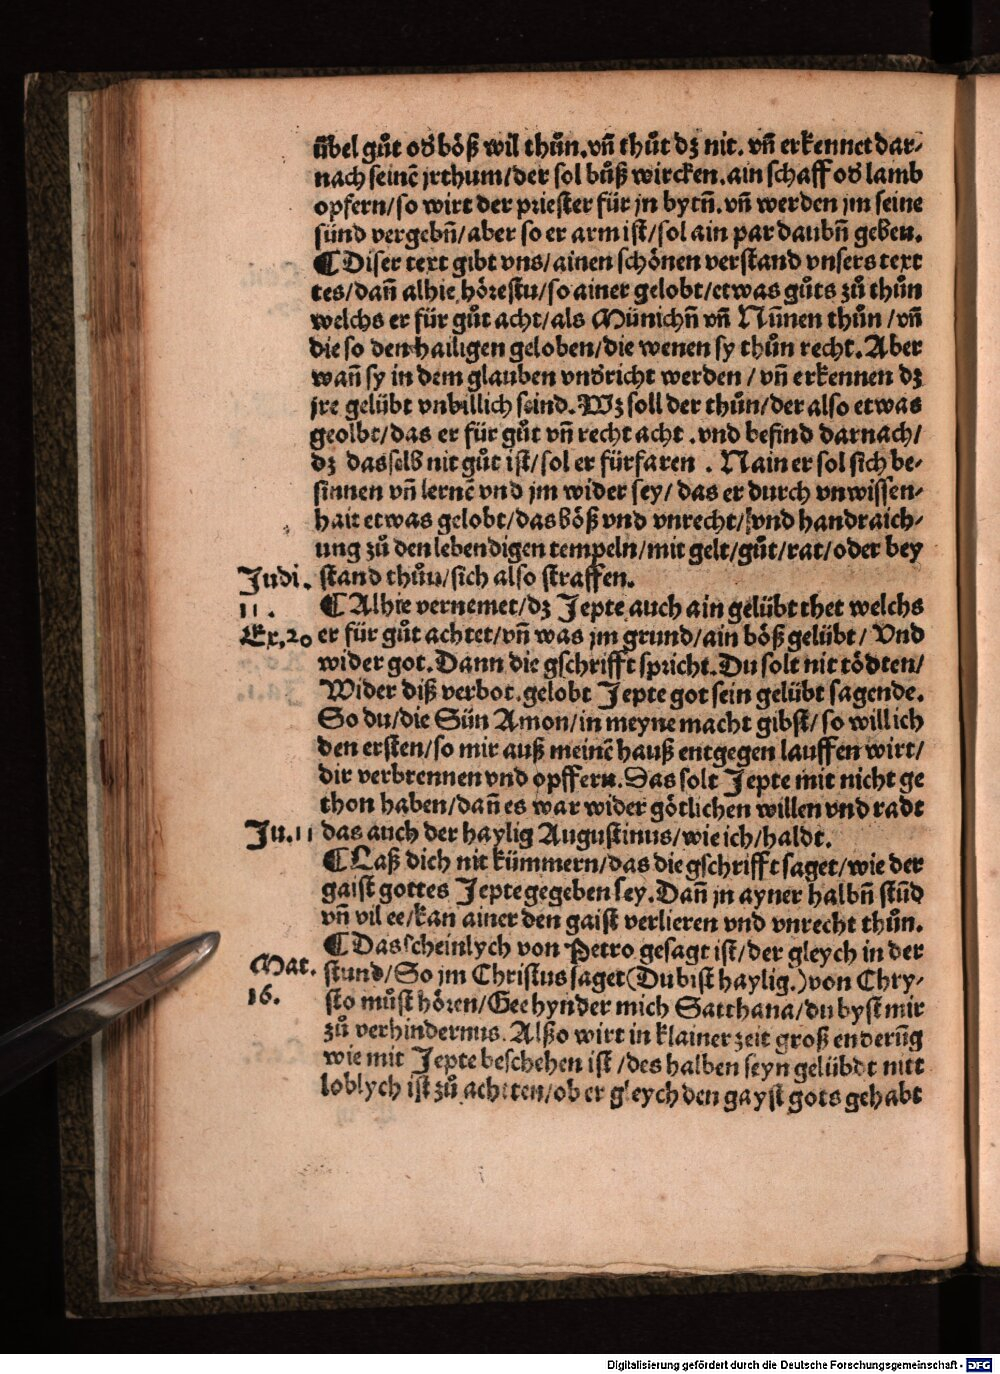 ůbel gůt oď böß wil thůn. vñ thůt dz nit. vñ erkennet dar⸗
nach seinē jrthum/der sol bůß wircken. ain schaff oď lamb
opfern/so wirt der priester für jn bytñ. vñ werden jm seine
sünd vergebñ/aber so er arm ist/sol ain par daubñ geben.
¶ Diser text gibt vns/ainen schönen verstand vnsers text
tes/dañ alhie hörestu/so ainer gelobt/etwas gůts zů thůn
welchs er für gůt acht/als Münichñ vñ Nũnen thůn/vñ
die so den hailigen geloben/die wenen sy thůn recht. Aber
wañ sy in dem glauben vnďricht werden/vñ erkennen dz
jre gelübt vnbillich seind. Wz soll der thůn/der also etwas
geolbt/das er für gůt vñ recht acht. vnd befind darnach/
dz dasselb nit gůt ist/sol er fürfaren. Nain er sol sich be⸗
sinnen vñ lernē vnd jm wider sey/das er durch vnwissen⸗
hait etwas gelobt/das böß vnd vnrecht/vnd handraich⸗
ung zů den lebendigen tempeln/mit gelt/gůt/rat/oder bey
Judi. stand thůn/sich also straffen.
11. ¶ Alhie vernemet/dz Jepte auch ain gelübt thet welchs
Ex. 20 er für gůt achtet/vñ was jm grund/ain böß gelübt/Vnd
wider got. Dann die gschrifft spricht. Du solt nit tödten/
Wider diß verbot. gelobt Jepte got sein gelübt sagende.
So du/die Sün Amon/in meyne macht gibst/so will ich
den ersten/so mir auß meinē hauß entgegen lauffen wirt/
dir verbrennen vnd opffern. Das solt Jepte mit nicht ge
thon haben/dañ es war wider götlichen willen vnd radt
Ju. 11 das auch der haylig Augustinus/wie ich/haldt.
¶ Laß dich nit kümmern/das die gschrifft saget/wie der
gaist gottes Jepte gegeben sey. Dañ jn ayner halbñ stũd
vñ vil ee/kan ainer den gaist verlieren vnd vnrecht thůn.
¶ Das scheinlych von Petro gesagt ist/der gleych in der
Mat. stund/So jm Christus saget (Du bist haylig.) von Chry⸗
16. sto můst hören/Gee hynder mich Satthana/du byst mir
zů verhindernus. Alßo wirt in klainer zeit groß enderũg
wie mit Jepte beschehen ist/des halben seyn gelübdt nitt
loblych ist zů achtten/ob er gleych den gayst gots gehabt
Digitalisierung gefördert durch die Deutsche Forschungsgemeinschaft - DFG